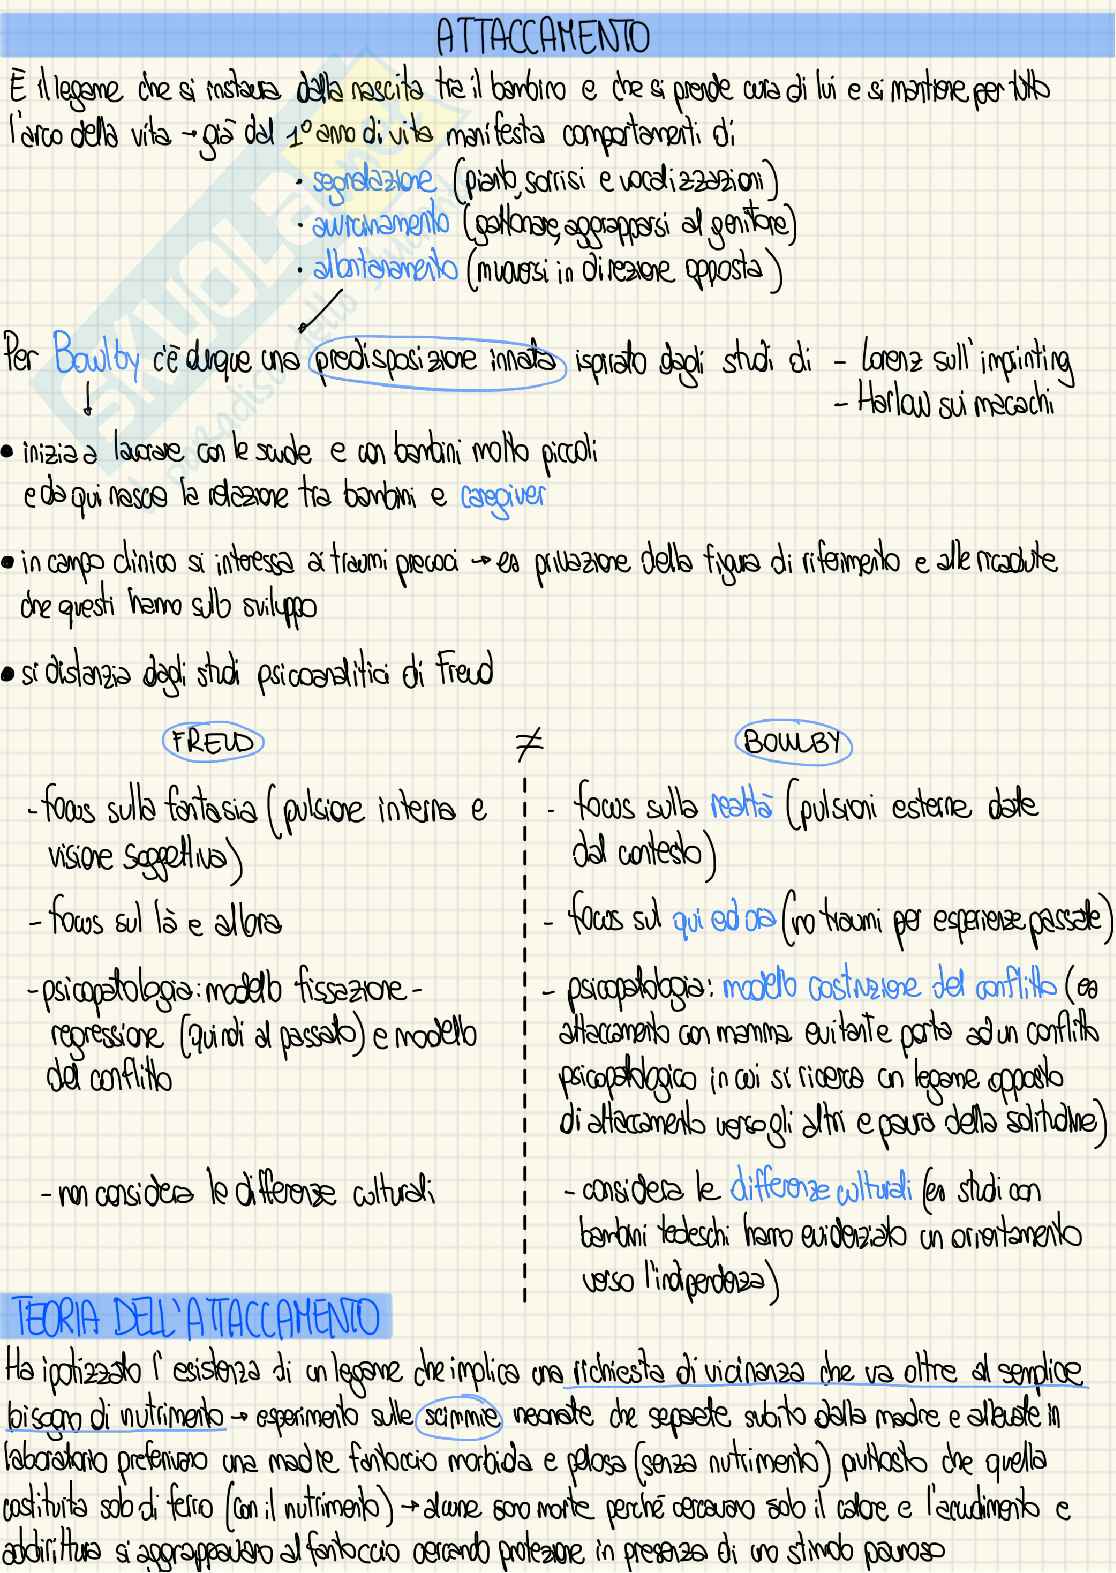 ATTACCAMENTO
È il legame che si instaura dalla nascita tra il bambino e che si prende cura di lui e si mantiene per tutto
l'arco della vita → già dal 1° anno di vita manifesta comportamenti di
• segnalazione (pianto, sorrisi e vocalizzazioni)
• avvicinamento (gattonare, aggrapparsi al genitore)
• allontanamento (muoversi in direzione opposta)
Per Bowlby c'è dunque una predisposizione innata ispirato dagli studi di – Lorenz sull'imprinting
– Harlow sui macachi
• inizia a lavorare con le scuole e con bambini molto piccoli
e da qui nasce la relazione tra bambini e caregiver
• in campo clinico si interessa ai traumi precoci → es privazione della figura di riferimento e alle ricadute
che questi hanno sullo sviluppo
• si distanzia dagli studi psicoanalitici di Freud
FREUD ≠ BOWLBY
- focus sulla fantasia (pulsione interna e
visione soggettiva)
- focus sul là e allora
- psicopatologia: modello fissazione -
regressione (quindi al passato) e modello
del conflitto
- non considera le differenze culturali
- focus sulla realtà (pulsioni esterne date
dal contesto)
- focus sul qui ed ora (no traumi per esperienze passate)
- psicopatologia: modello costruzione del conflitto (es
attaccamento con mamma evitante porta ad un conflitto
psicopatologico in cui si ricerca un legame opposto
di attaccamento verso gli altri e paura della solitudine)
- considera le differenze culturali (es studi con
bambini tedeschi hanno evidenziato un orientamento
verso l'indipendenza)
TEORIA DELL'ATTACCAMENTO
Ha ipotizzato l'esistenza di un legame che implica una richiesta di vicinanza che va oltre al semplice
bisogno di nutrimento → esperimento sulle scimmie neonate che separate subito dalla madre e allevate in
laboratorio preferivano una madre fantoccio morbida e pelosa (senza nutrimento) piuttosto che quella
costituita solo di ferro (con il nutrimento) → alcune sono morte perché cercavano solo il calore e l'accudimento e
addirittura si aggrappavano al fantoccio cercando protezione in presenza di uno stimolo pauroso